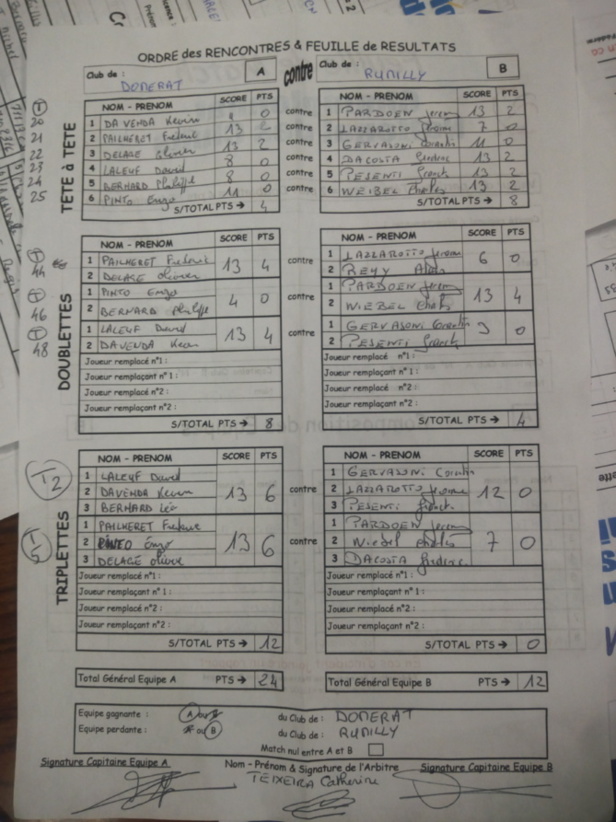 ORDRE des RENCONTRES & FEUILLE de RESULTATS
Club de : DOMERAT A contre Club de : RUMILLY B
TETE à TETE
NOM - PRENOM SCORE PTS
1 DA VENDA Kevin 0 contre 1 PARDOEN Jeremy 13 2
20
2 PAILHERET Frederic 13 contre 2 LAZZAROTTO Jerome 7 0
21
3 DELAGE Olivier 13 2 contre 3 GERVASONI Corentin 11 0
22
4 LALEUF David 8 0 contre 4 DACOSTA 13 2
23
5 BERNARD Philippe 8 0 contre 5 PESENTI Franck 13 2
24
6 PINTO Enzo 11 0 contre 6 WEIBEL 13 2
25
S/TOTAL PTS → 4 S/TOTAL PTS → 8
DOUBLETTES
NOM - PRENOM SCORE PTS NOM - PRENOM SCORE PTS
44
1 PAILHERET Frederic 13 4 contre 1 LAZZAROTTO Jerome 6 0
2 DELAGE Olivier 2 REMY
46
1 PINTO Enzo 4 0 contre 1 PARDOEN Jeremy 13 4
2 BERNARD Philippe 2 WIEBEL
48
1 LALEUF David 13 4 contre 1 GERVASONI Corentin 0
2 DAVENDA Kevin 2 PESENTI Franck
Joueur remplacé n°1 : Joueur remplacé n°1 :
Joueur remplaçant n°1 : Joueur remplaçant n°1 :
Joueur remplacé n°2 : Joueur remplacé n°2 :
Joueur remplaçant n°2 : Joueur remplaçant n°2 :
S/TOTAL PTS → 8 S/TOTAL PTS → 4
TRIPLETTES
NOM - PRENOM SCORE PTS NOM - PRENOM SCORE PTS
T2
1 LALEUF David 1 GERVASONI Corentin
2 DAVENDA Kevin 13 6 contre 2 LAZZAROTTO Jerome 12 0
3 BERNARD Léo 3 PESENTI Franck
T5
1 PAILHERET Frederic 1 PARDOEN Jeremy
2 PINTO Enzo 13 6 contre 2 Wiebel 7 0
3 DELAGE Olivier 3 DACOSTA
Joueur remplacé n°1 : Joueur remplacé n°1 :
Joueur remplaçant n°1 : Joueur remplaçant n°1 :
Joueur remplacé n°2 : Joueur remplacé n°2 :
Joueur remplaçant n°2 : Joueur remplaçant n°2 :
S/TOTAL PTS → 12 S/TOTAL PTS → 0
Total Général Equipe A PTS → 24 Total Général Equipe B PTS → 12
Equipe gagnante : A ou B du Club de : DOMERAT
Equipe perdante : A ou B du Club de : RUMILLY
Match nul entre A et B
Signature Capitaine Equipe A Nom - Prénom & Signature de l'Arbitre Signature Capitaine Equipe B
TEIXEIRA Catherine